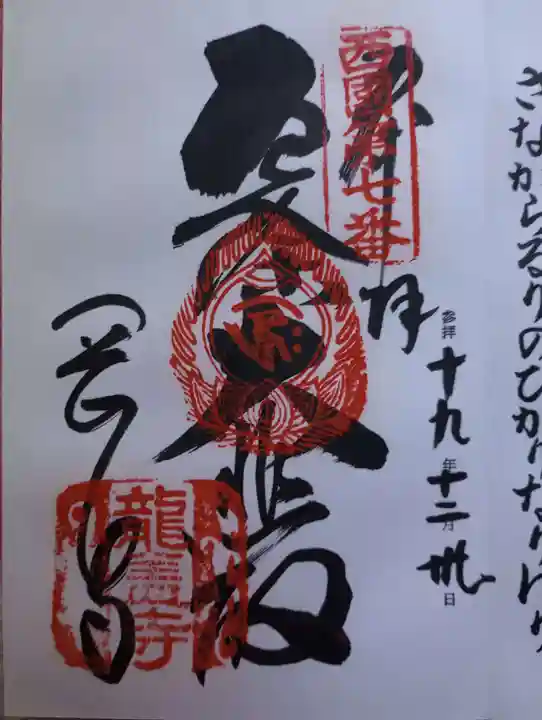 さながらるりのひかりなりけり
奉拝
西國第七番
参拝 十九年十二月卅日
大悲殿
岡寺
龍蓋寺